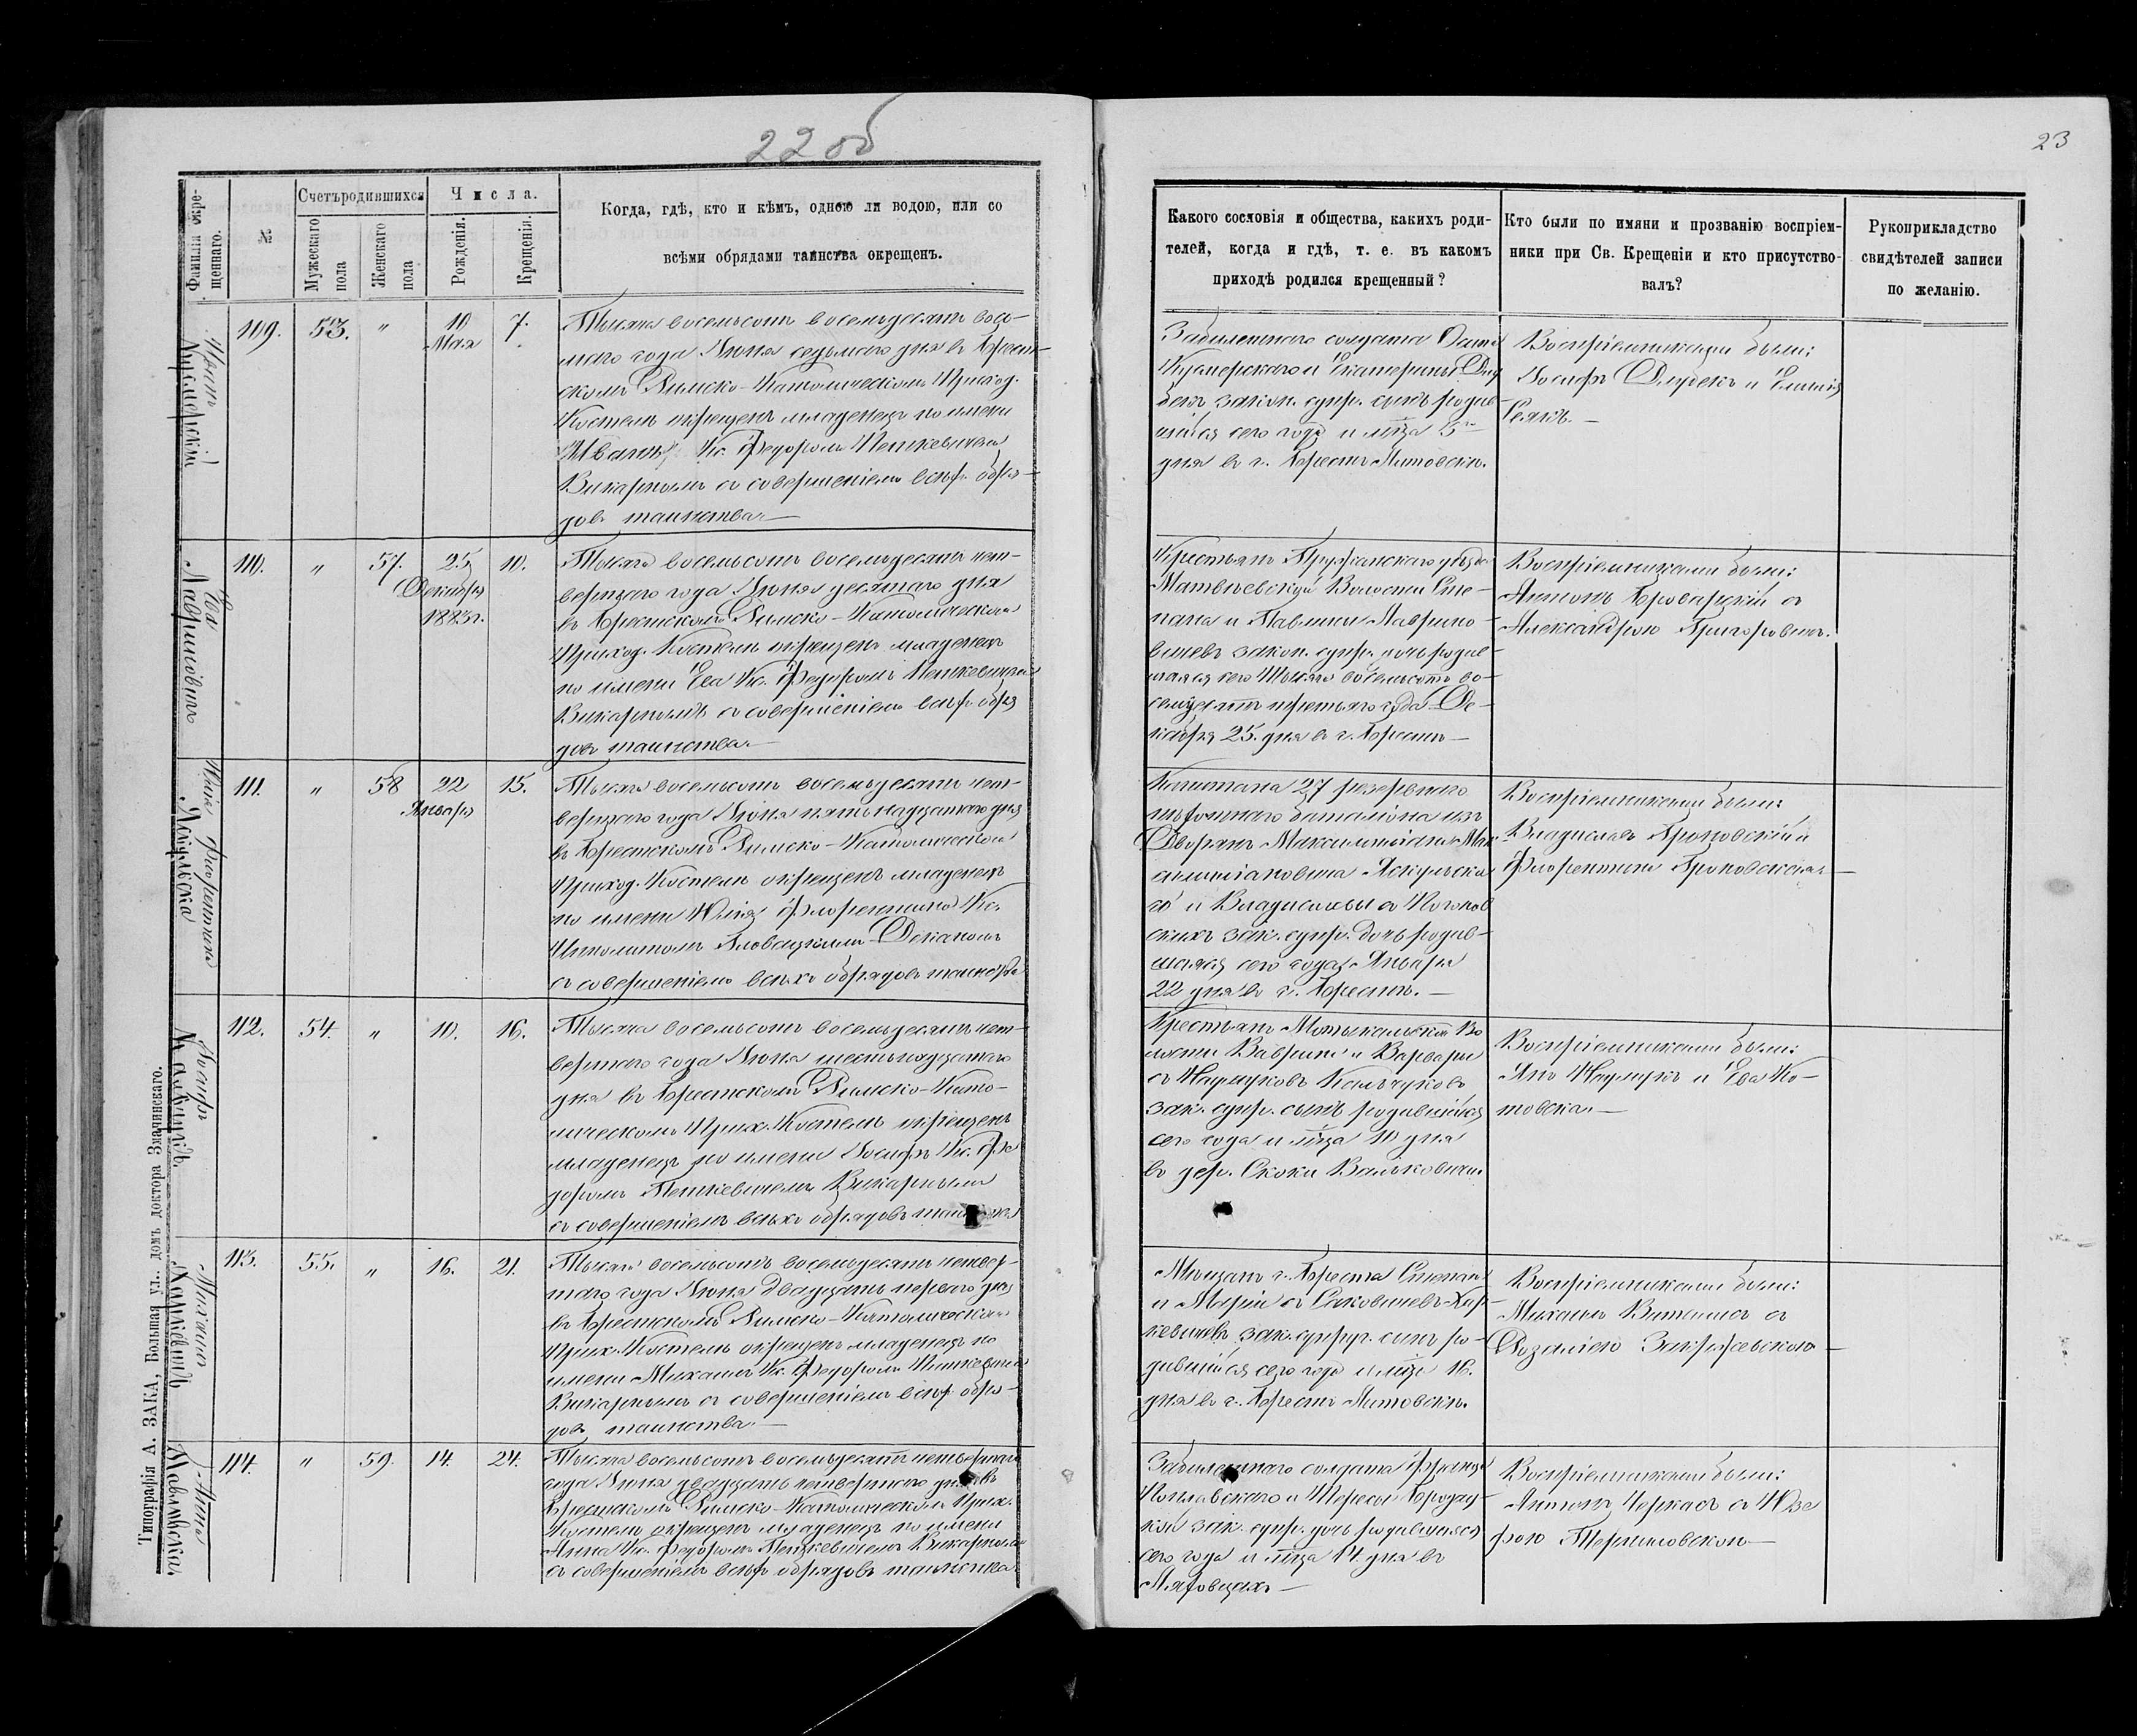 22 об
23
Фамилія окре-
щеннаго.
№
Счетъ родившихся
Мужескаго
пола
Женскаго
пола
Числа.
Рожденія.
Крещенія.
Когда, гдѣ, кто и кѣмъ, одною ли водою, или со
всѣми обрядами таинства окрещенъ.
Какого сословія и общества, какихъ роди-
телей, когда и гдѣ, т. е. въ какомъ
приходѣ родился крещенный?
Кто были по имяни и прозванію воспріем-
ники при Св. Крещеніи и кто присутство-
валъ?
Рукоприкладство
свидѣтелей записи
по желанію.
Иванъ
109.
53.
"
10
Мая
7.
Тысяча восемьсотъ восемьдесятъ вось-
маго года Іюня седьмаго дня въ Брест-
скомъ Римско-Католическомъ Приход.
Костелѣ окрещенъ младенецъ по имени
Иванъ Кс. Федоромъ Петкевичемъ
Викарнымъ съ совершеніемъ всѣхъ обря-
довъ таинства.—
Забилетнаго солдата
и Екатерины
закон. супр. сынъ родив-
шійся сего года и мца
дня въ г. Брестъ Литовскѣ.
Воспріемниками были:
Іосифъ и Емилія
110.
"
57.
25
Декабря
1883 г.
10.
Ева
Лавриновичъ
Тысяча восемьсотъ восемьдесятъ чет-
вертаго года Іюня десятаго дня
въ Брестскомъ Римско-Католическомъ
Приход. Костелѣ окрещенъ младенецъ
по имени Ева Кс. Федоромъ Петкевичемъ
Викарнымъ съ совершеніемъ всѣхъ обря
довъ таинства.—
Крестьянъ Пружанскаго уѣзда
Матвѣевской Волости Сте-
пана и Павлины Лаврино-
вичевъ закон. супр. дочь родив-
шаяся сего Тысяча восемьсотъ во-
семдесятъ третьяго года Де-
кабря 25. дня въ г. Брестѣ—
Воспріемниками были:
Антонъ Броварскій съ
Александрою Григоровичъ.
111.
"
58
22
Января
15.
Юлія Флорентина
Тысяча восемьсотъ восемьдесятъ чет-
вертаго года Іюня пятьнадцатаго дня
въ Брестскомъ Римско-Католическомъ
Приход. Костелѣ окрещенъ младенецъ
по имени Юлія Флорентина Кс.
Ипполитомъ Деканомъ
съ совершеніемъ всѣхъ обрядовъ таинства
Капитана 27 резервнаго
пѣхотнаго баталіона изъ
Дворянъ Максимиліана Мак-
симиліановича
го и Владиславы съ
скихъ зак. супр. дочь родив-
шаяся сего года Января
22 дня въ г. Брестѣ.—
Воспріемниками были:
Владиславъ и
Флорентина
112.
54.
"
10.
16.
Іосифъ
Тысяча восемьсотъ восемьдесятъ чет-
вертаго года Іюня шестьнадцатаго
дня въ Брестскомъ Римско-Като-
лическомъ Прих. Костелѣ окрещенъ
младенецъ по имени Іосифъ Кс. Фе
доромъ Петкевичемъ Викарнымъ
съ совершеніемъ всѣхъ обрядовъ
Крестьянъ Мотыкальской Во
лости и Варвары
съ Наумуковъ
зак. супр. сынъ родившійся
сего года и мца 10 дня
въ дер. Скоки
Воспріемниками были:
Янъ Наумукъ и Ева Ко-
товска.—
113.
55.
"
16.
21.
Михаилъ
Тысяча восемьсотъ восемьдесятъ четвер-
таго года Іюня двадцать перваго дня
въ Брестскомъ Римско-Католическомъ
Прих. Костелѣ окрещенъ младенецъ по
имени Михаилъ Кс. Федоромъ Петкевичемъ
Викарнымъ съ совершеніемъ всѣхъ обря-
довъ таинства.—
Мѣщанъ г. Бреста Степана
и Маріи съ Саковичевъ
кевичевъ зак. супруг. сынъ ро-
дившійся сего года и мца 16.
дня въ г. Брестъ Литовскѣ.
Воспріемниками были:
Михаилъ съ
Розаліею Закржевскою—
114.
"
59.
14.
24.
Анна
Тысяча восемьсотъ восемьдесятъ четвертаго
года Іюня двадцать четвертаго дня въ
Брестскомъ Римско-Католическомъ Прих.
Костелѣ окрещенъ младенецъ по имени
Анна Кс. Федоромъ Петкевичемъ Викарнымъ
съ совершеніемъ всѣхъ обрядовъ таинства
Забилетнаго солдата
и Тересы
зак. супр. дочь родившаяся
сего года и мца 14. дня въ
Воспріемниками были:
Антонъ Черкасъ съ Юзе
фою
Типографія А. ЗАКА, Большая ул., домъ доктора Значинскаго.